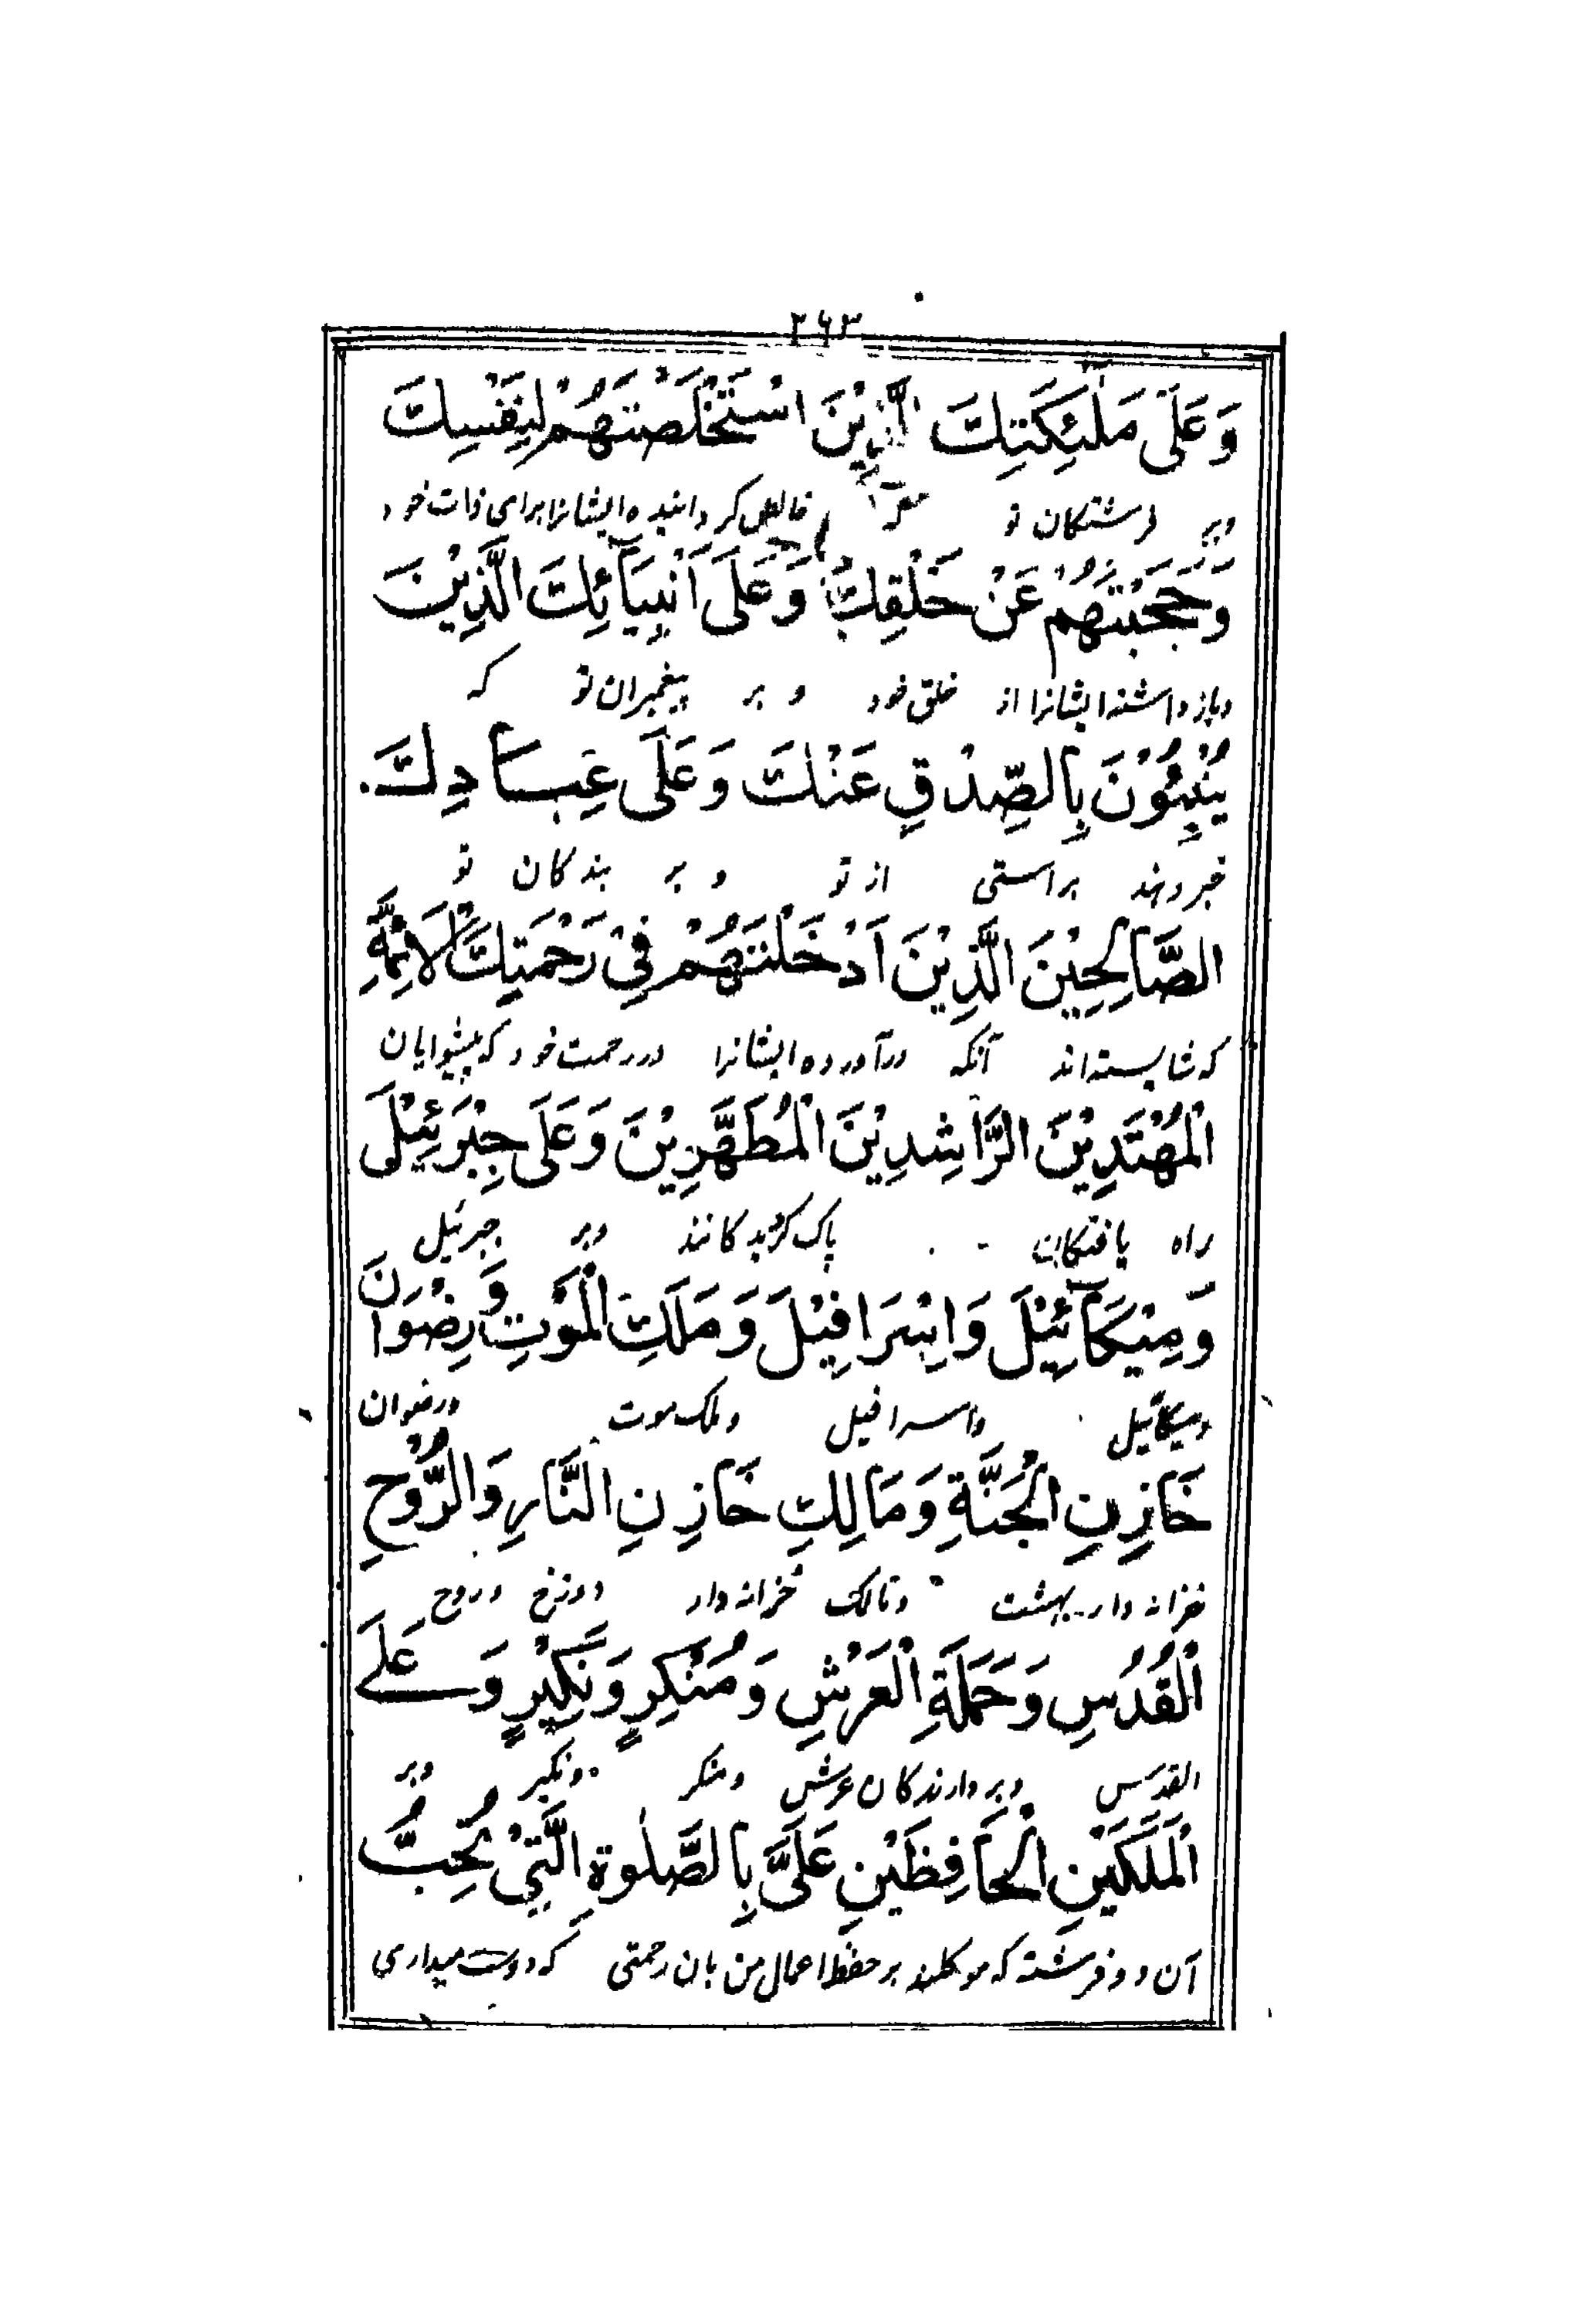 ۲۶۳
وَعَلَى مَلٰئِكَتِكَ الَّذِيْنَ اسْتَخْلَصْتَهُمْ لِنَفْسِكَ
وبر فرشتكان تو خالص كردانيده ايشانرا براى ذات خود
وَحَجَبْتَهُمْ عَنْ خَلْقِكَ وَعَلَى اَنْبِيَآئِكَ الَّذِيْنَ
وباز داشته ايشانرا از خلق خود و بر پيغمبران تو كه
يُنْبِئُوْنَ بِالصِّدْقِ عَنْكَ وَعَلَى عِبَادِكَ
خبر دهند براستى از تو و بر بندكان تو
الصَّالِحِيْنَ الَّذِيْنَ اَدْخَلْتَهُمْ فِيْ رَحْمَتِكَ الْاَئِمَّةِ
كه شايسته اند آنكه درآورده ايشانرا در رحمت خود كه پيشوايان
الْمُهْتَدِيْنَ الرَّاشِدِيْنَ الْمُطَهَّرِيْنَ وَعَلَى جِبْرَئِيْلَ
راه يافتكان پاك وبر جبرئيل
وَمِيْكَآئِيْلَ وَاِسْرَافِيْلَ وَمَلَكِ الْمَوْتِ وَرِضْوَانَ
وميكائيل واسرافيل وملك موت ورضوان
خَازِنِ الْجَنَّةِ وَمَالِكِ خَازِنِ النَّارِ وَالرُّوْحِ
خزانه دار بهشت ومالك خزانه دار دوزخ وروح
الْقُدُسِ وَحَمَلَةِ الْعَرْشِ وَمُنْكِرٍ وَنَكِيْرٍ وَعَلَى
القدس وبر دارندكان عرش ومنكر ونكير وبر
الْمَلَكَيْنِ الْحَافِظَيْنِ عَلَيَّ بِالصَّلٰوةِ الَّتِيْ تُحِبُّ
آن دو فرشته كه موكلند بر حفظ اعمال من بان رحمتى كه دوست ميدارى